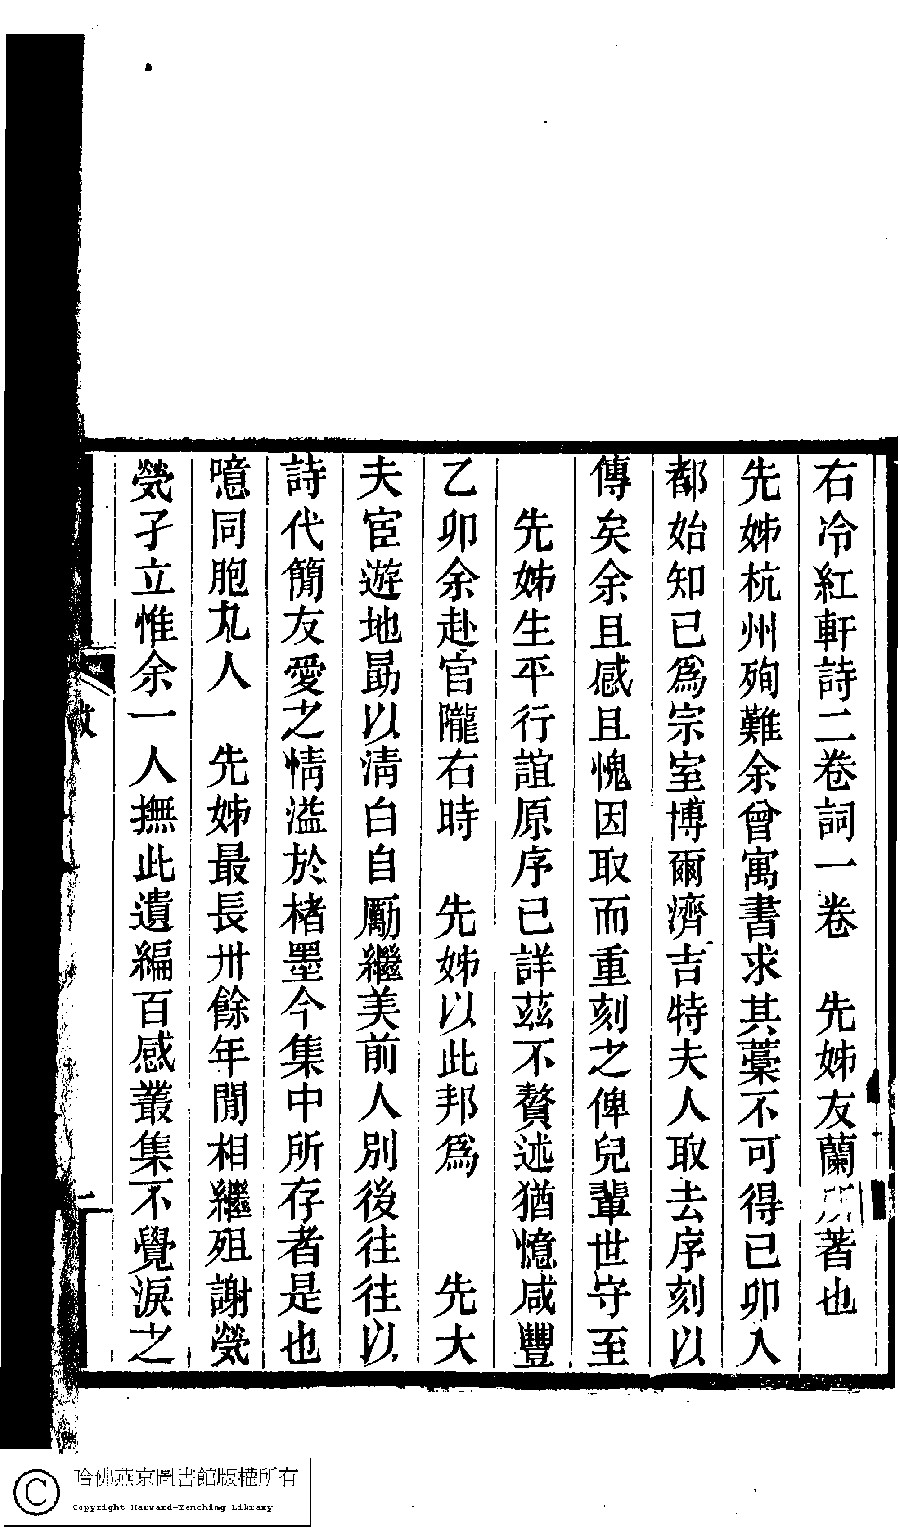 右冷紅軒詩二卷詞一卷　先姊友蘭所著也
先姊杭州殉難余曾寓書求其藁不可得己卯入
都始知已爲宗室博爾濟吉特夫人取去序刻以
傳矣余且感且愧因取而重刻之俾兒輩世守至
先姊生平行誼原序已詳茲不贅述猶憶咸豐
乙卯余赴官隴右時　先姊以此邦爲　先大
夫宦遊地勗以淸白自勵繼美前人別後往往以
詩代簡友愛之情溢於楮墨今集中所存者是也
噫同胞九人　先姊最長卅餘年閒相繼殂謝煢
煢孑立惟余一人撫此遺編百感叢集不覺淚之
一
哈佛燕京圖書館版權所有
Copyright Harvard-Yenching Library